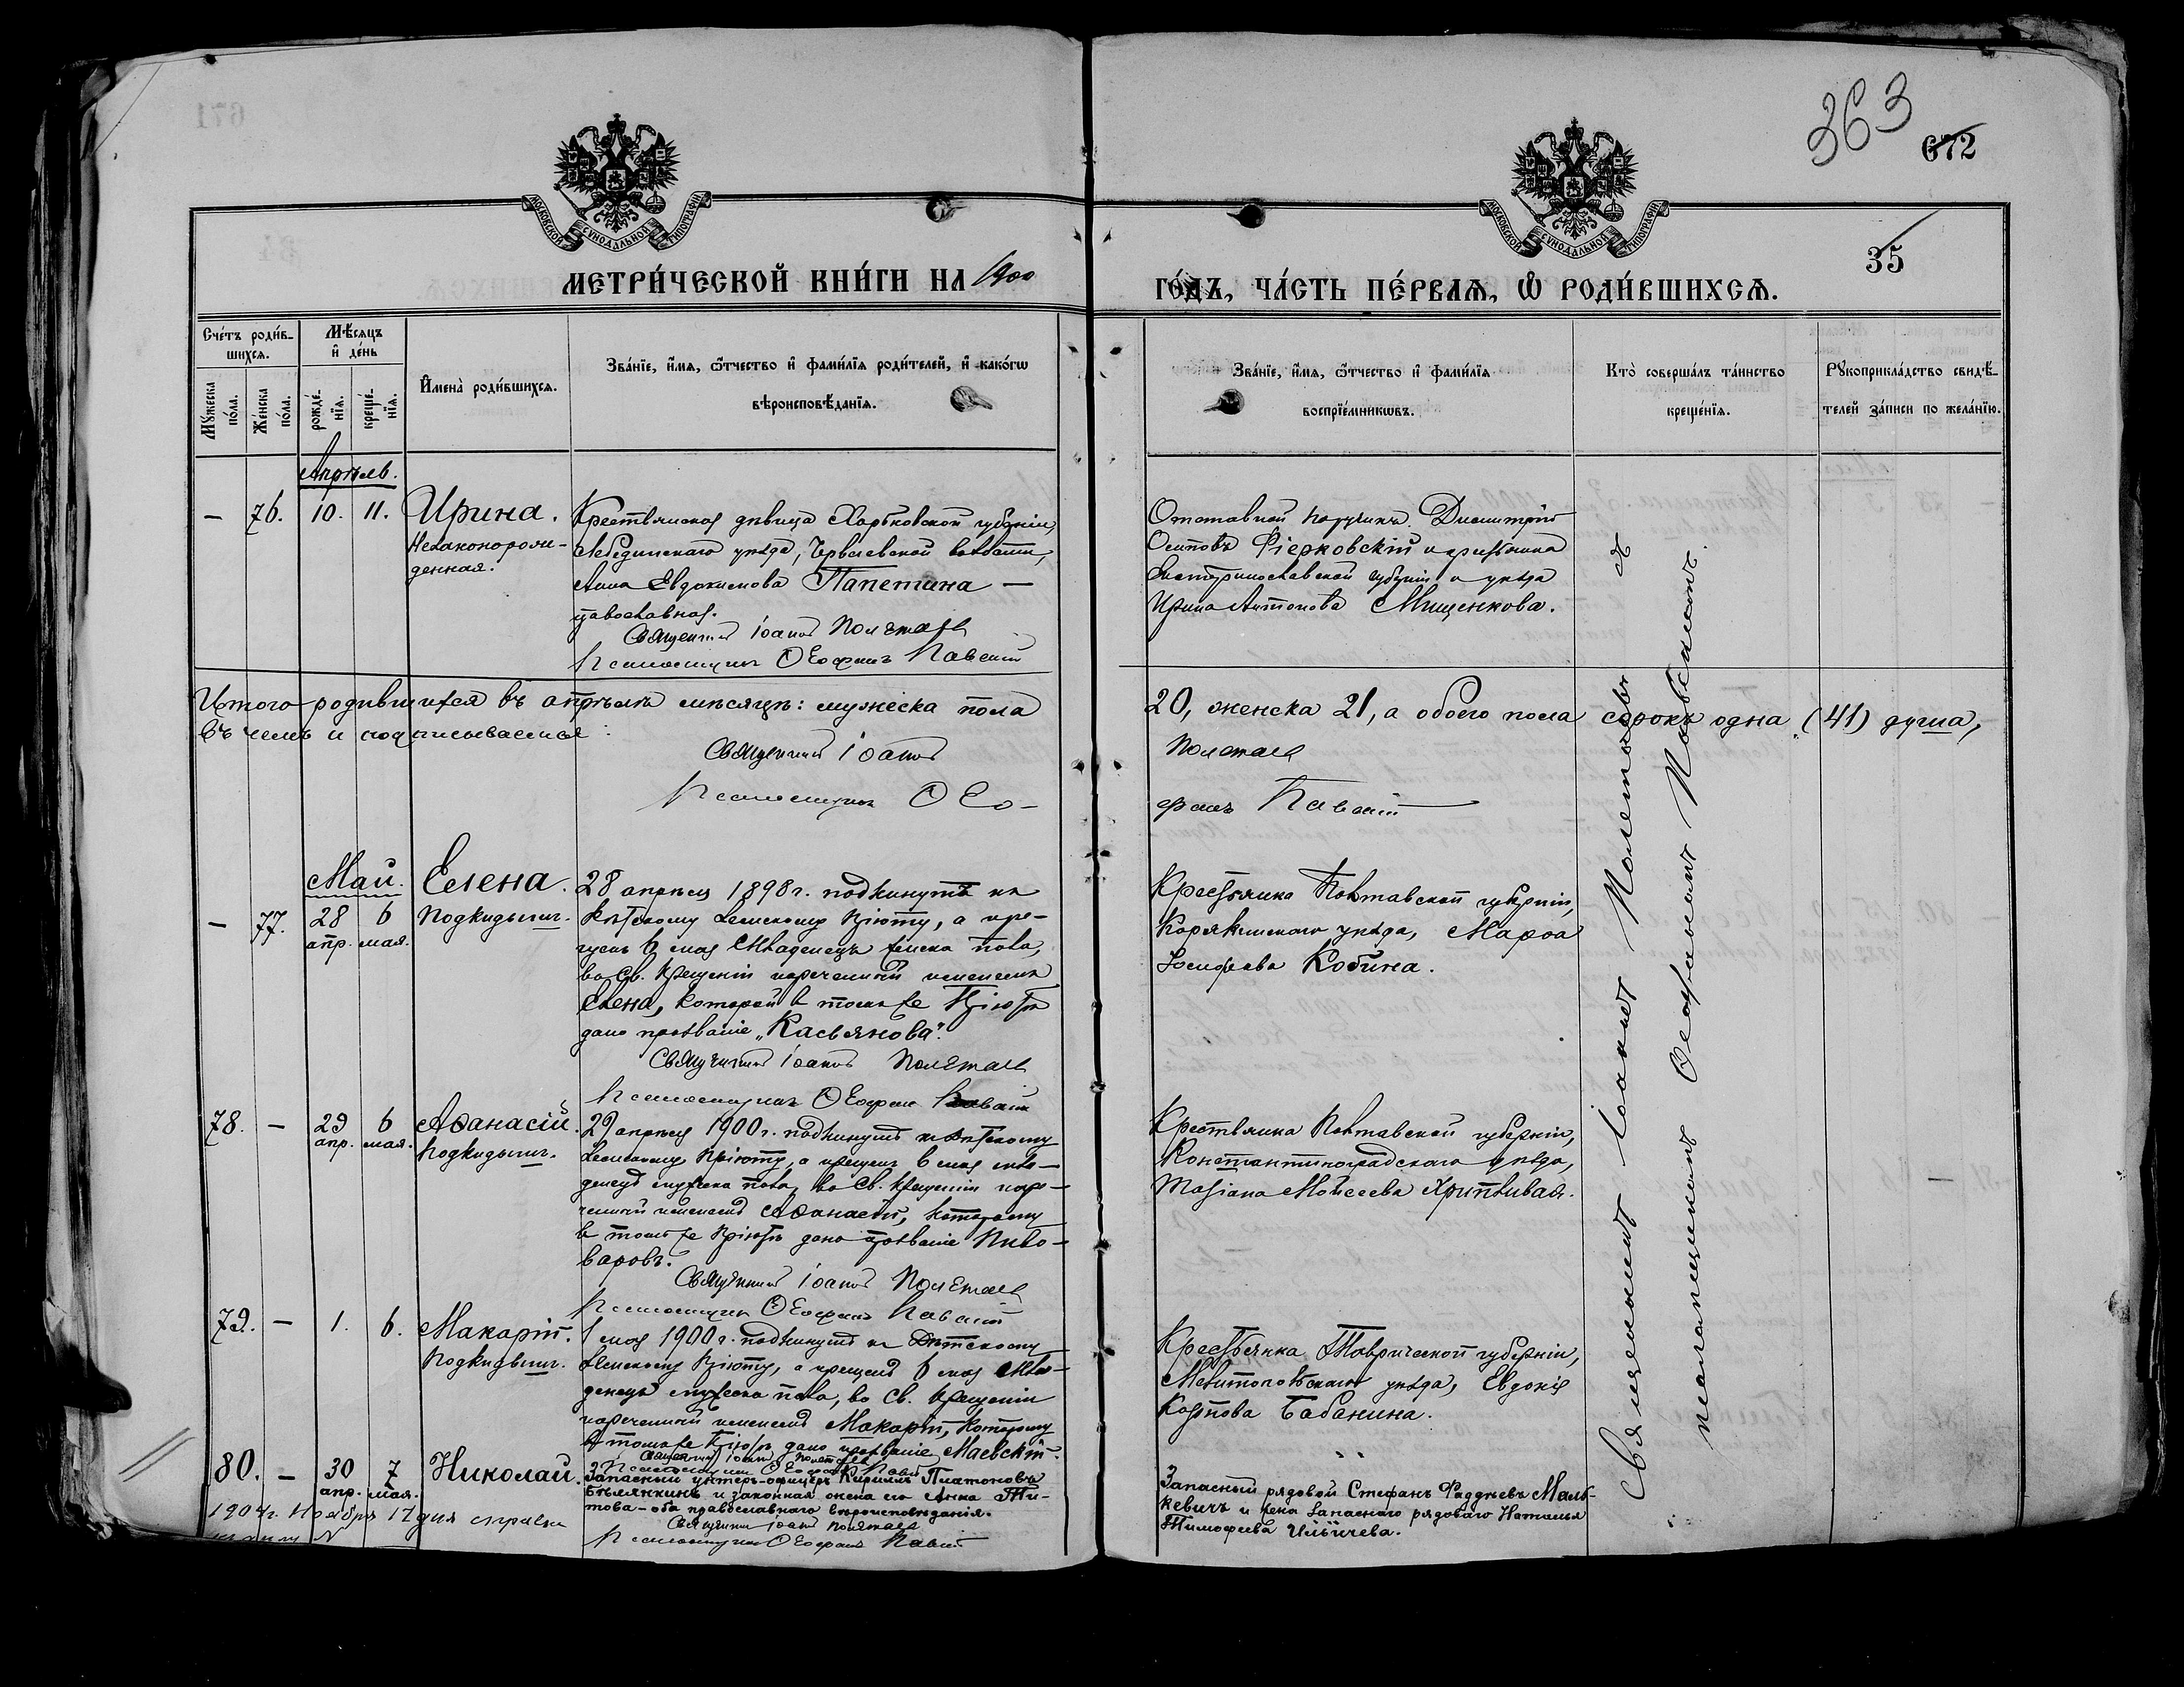 363
672
МОСКОВСКОЙ СУНОДАЛЬНОЙ ТИПОГРАФIИ
МОСКОВСКОЙ СУНОДАЛЬНОЙ ТИПОГРАФIИ
35
МЕТРИ́ЧЕСКОЙ КНИ́ГИ НА 1900
ГО́ДЪ, ЧА́СТЬ ПЕ́РВАѦ, Ѡ РОДИ́ВШИХСѦ.
Сче́тъ роди́в-
шихсѧ.
Мѣ́сѧцъ
и҆ де́нь
Мꙋ́жеска
по́ла.
Же́нска
по́ла.
рожде́-
нїѧ.
креще́-
нїѧ.
И҆мена̀ роди́вшихсѧ.
Зва́нїе, и҆́мѧ, ѻ҆́тчество и҆ фами́лїѧ роди́телей, и҆ како́гѡ
вѣроисповѣ́данїѧ.
Зва́нїе, и҆́мѧ, ѻ҆́тчество и҆ фами́лїѧ
воспрїе́мникѡвъ.
Кто̀ соверша́лъ та́инство
креще́нїѧ.
Рꙋкоприкла́дство свидѣ́-
телей за́писи по жела́нїю.
Апрѣль.
— 76. 10. 11. Ирина.
Незаконорож-
денная.
Крестьянская дѣвица Харьковской губерніи,
Лебединскаго уѣзда, волости,
Анна Евдокимова Папетина —
православная.
Священникъ Іоаннъ Полетаевъ
Псаломщикъ Ѳеофанъ Павскій
Отставной поручикъ Димитрій
Осиповъ Фіерковскій и крестьянка
Екатеринославской губерніи и уѣзда
Ирина Антонова Мищенкова.
Итого родившихся въ апрѣлѣ мѣсяцѣ: мужеска пола
20, женска 21, а обоего пола сорокъ одна (41) душа,
въ чемъ и подписываемся:
Священникъ Іоаннъ
Полетаевъ
Псаломщикъ Ѳео-
фанъ Павскій
Май.
— 77. 28 6
апр. мая.
Елена.
Подкидышъ.
28 апрѣля 1898 г. подкинутъ къ
Дѣтскому Земскому Пріюту, а кре-
щенъ 6 мая младенецъ женска пола,
во Св. Крещеніи нареченный именемъ
Елена, которой въ томъ же Пріютѣ
дано прозваніе „Касьянова".
Священникъ Іоаннъ Полетаевъ
Псаломщикъ Ѳеофанъ Павскій
Крестьянка Полтавской губерніи,
уѣзда, Марѳа
Іосифова Кобина.
78. — 29 6
апр. мая.
Аѳанасій.
Подкидышъ.
29 апрѣля 1900 г. подкинутъ къ Дѣтскому
Земскому Пріюту, а крещенъ 6 мая мла-
денецъ мужеска пола, во Св. Крещеніи наре-
ченный именемъ Аѳанасій, которому
въ томъ же Пріютѣ дано прозваніе Пиво-
варовъ.
Священникъ Іоаннъ Полетаевъ
Псаломщикъ Ѳеофанъ Павскій
Крестьянка Полтавской губерніи,
Константиноградскаго уѣзда,
Моисеева
79. — 1. 6. Макарій.
Подкидышъ.
1 мая 1900 г. подкинутъ къ Дѣтскому
Земскому Пріюту, а крещенъ 6 мая мла-
денецъ мужеска пола, во Св. Крещеніи
нареченный именемъ Макарій, которому
въ томъ же Пріютѣ дано прозваніе Маевскій.
Священникъ Іоаннъ Полетаевъ
Псаломщикъ Ѳеофанъ Павскій
Крестьянка Таврической губерніи,
Мелитопольскаго уѣзда, Евдокія
Карпова Бабанина.
80. — 30 7
апр. мая.
Николай.
Запасный унтеръ-офицеръ Кириллъ Платоновъ
Бѣлянкинъ и законная жена его Анна Ти-
това — оба православнаго вѣроисповѣданія.
Священникъ Іоаннъ Полетаевъ
Псаломщикъ Ѳеофанъ Павскій
Запасный рядовой Стефанъ Фаддѣевъ Маль-
кевичъ и жена запаснаго рядоваго Наталья
Тимофеева Ильичева.
1904 г. Ноября 17 дня справка
Священникъ Іоаннъ Полетаевъ съ
псаломщикомъ Ѳеофаномъ Павскимъ.